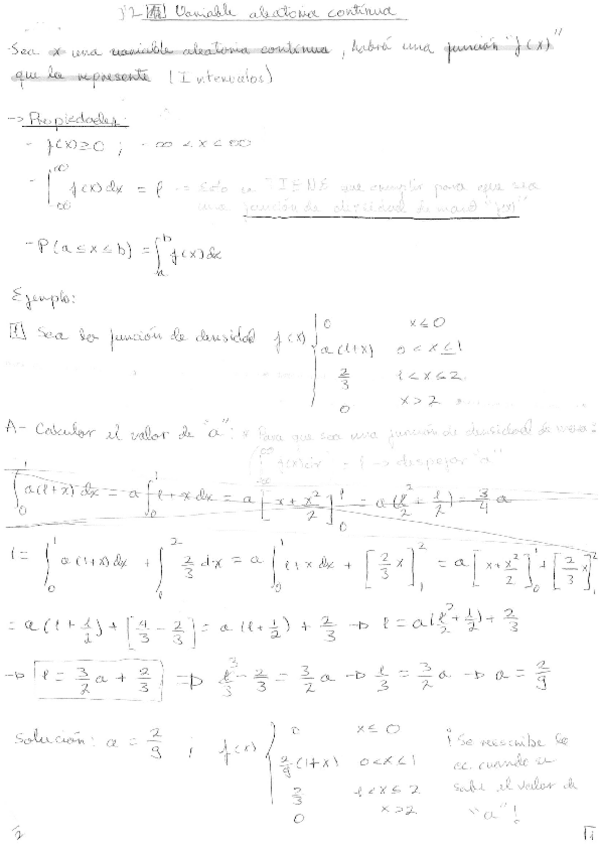 Variable aleatoria continua
Sea x una variable aleatoria continua, habrá una función "f(x)"
que la represente (Intervalos)
-> Propiedades:
- f(x) ≥ 0 ; -∞ < x < ∞
- ∫ f(x) dx = 1 -> Sólo se TIENE que cumplir para que sea
una función de densidad de masa "f(x)"
- P(a ≤ x ≤ b) = ∫_a^b f(x) dx
Ejemplo:
1 Sea la función de densidad f(x) { 0 x ≤ 0
a(1+x) 0 < x ≤ 1
2/3 1 < x ≤ 2
0 x > 2
A- Calcular el valor de "a": * Para que sea una función de densidad de masa:
∫ f(x)dx = 1 -> despejar "a"
∫_0^1 a(1+x) dx = a ∫_0^1 1+x dx = a [x + x²/2]_0^1 = a(1²/2 + 1/2) = 3/4 a
1 = ∫_0^1 a(1+x) dx + ∫_1^2 2/3 dx = a ∫_0^1 1+x dx + [2/3 x]_1^2 = a [x + x²/2]_0^1 + [2/3 x]_1^2
= a(1 + 1/2) + [4/3 - 2/3] = a(1 + 1/2) + 2/3 -> 1 = a(1²/2 + 1/2) + 2/3
-> 1 = 3/2 a + 2/3 => 3/3 - 2/3 = 3/2 a -> 1/3 = 3/2 a -> a = 2/9
Solución: a = 2/9 ; f(x) { 0 x ≤ 0
2/9 (1+x) 0 < x ≤ 1
2/3 1 < x ≤ 2
0 x > 2
¡Se reescribe
cuando se
sabe el valor de
"a"!
2